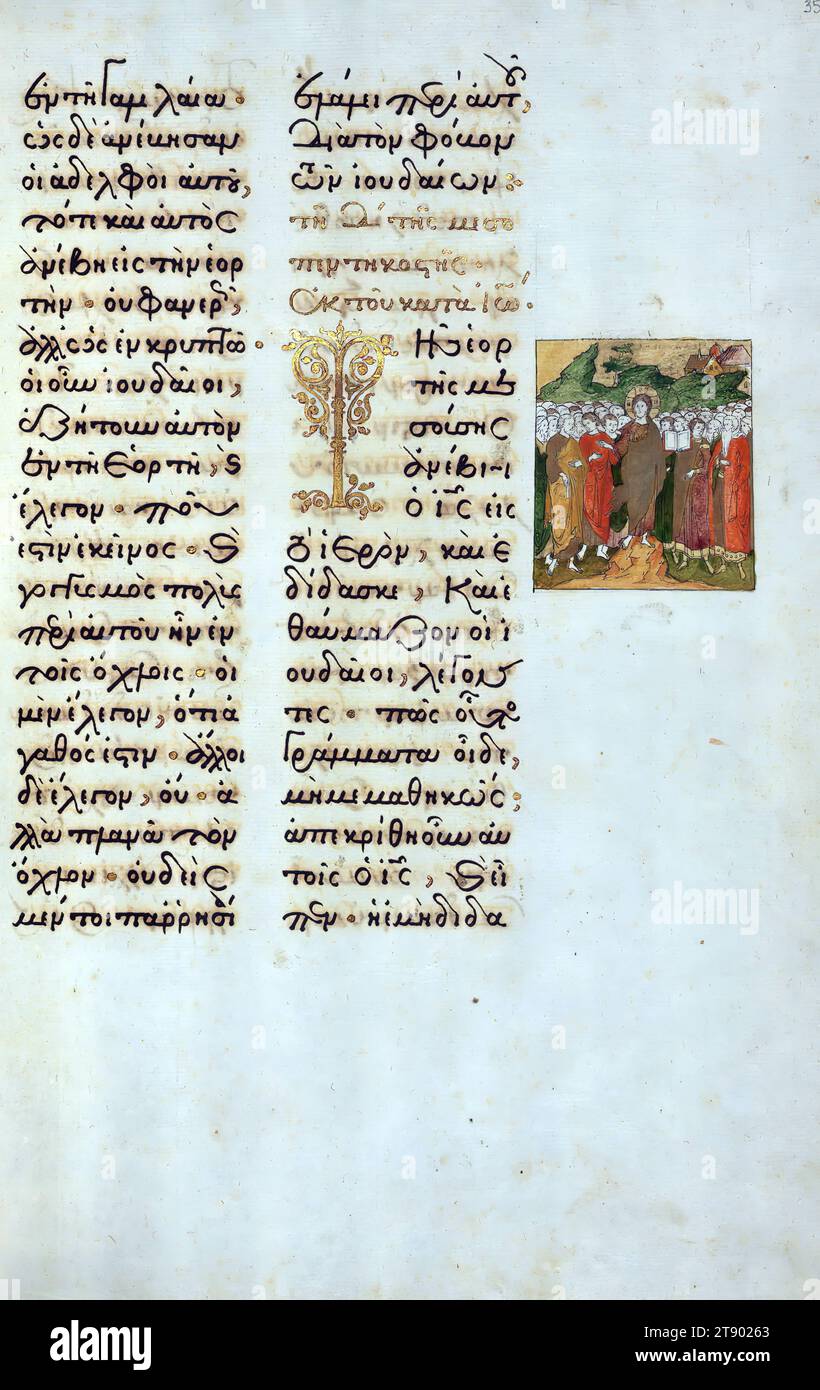 ἐν τῆ Γαλιλαία·
ὡς δὲ ἀνέβησαν
οἱ ἀδελφοὶ αὐτοῦ,
τότε καὶ αὐτὸς
ἀνέβη εἰς τὴν ἑορ
τήν· οὐ φανερῶς
ἀλλ' ὡς ἐν κρυπτῶ·
οἱ οὖν ἰουδαῖοι,
ἐζήτουν αὐτὸν
ἐν τῆ ἑορτῆ, ϗ
ἔλεγον· ποῦ
ἐστὶν ἐκεῖνος· ϗ
γογγυσμὸς πολὺς
περὶ αὐτοῦ ἦν ἐν
τοῖς ὄχλοις· οἱ
μὲν ἔλεγον, ὅτι ἀ
γαθός ἐστιν· ἄλλοι
δὲ ἔλεγον, οὔ· ἀ
λλὰ πλανᾶ τὸν
ὄχλον· οὐδεὶς
μέντοι παρρησί
ἐλάλει περὶ αὐτοῦ,
διὰ τὸν φόβον
τῶν ἰουδαίων:
τῆ Δ τῆς μεσο
πεντηκοστῆς·
Ἐκ τοῦ κατὰ Ἰω·
Τῆς ἑορ
τῆς με
σούσης
ἀνέβη
ὁ ις εἰς
τὸ ἱερὸν, καὶ ἐ
δίδασκε, Καὶ ἐ
θαύμαζον οἱ ἰ
ουδαῖοι, λέγον
τες· πῶς οὗτος
γράμματα οἶδε,
μὴ μεμαθηκώς;
ἀπεκρίθη οὖν αὐ
τοῖς ὁ ις, ϗ εἶ
πεν· ἡ ἐμὴ διδα
35
alamy
alamy
a
alamy
Image ID: 2T90263
www.alamy.com